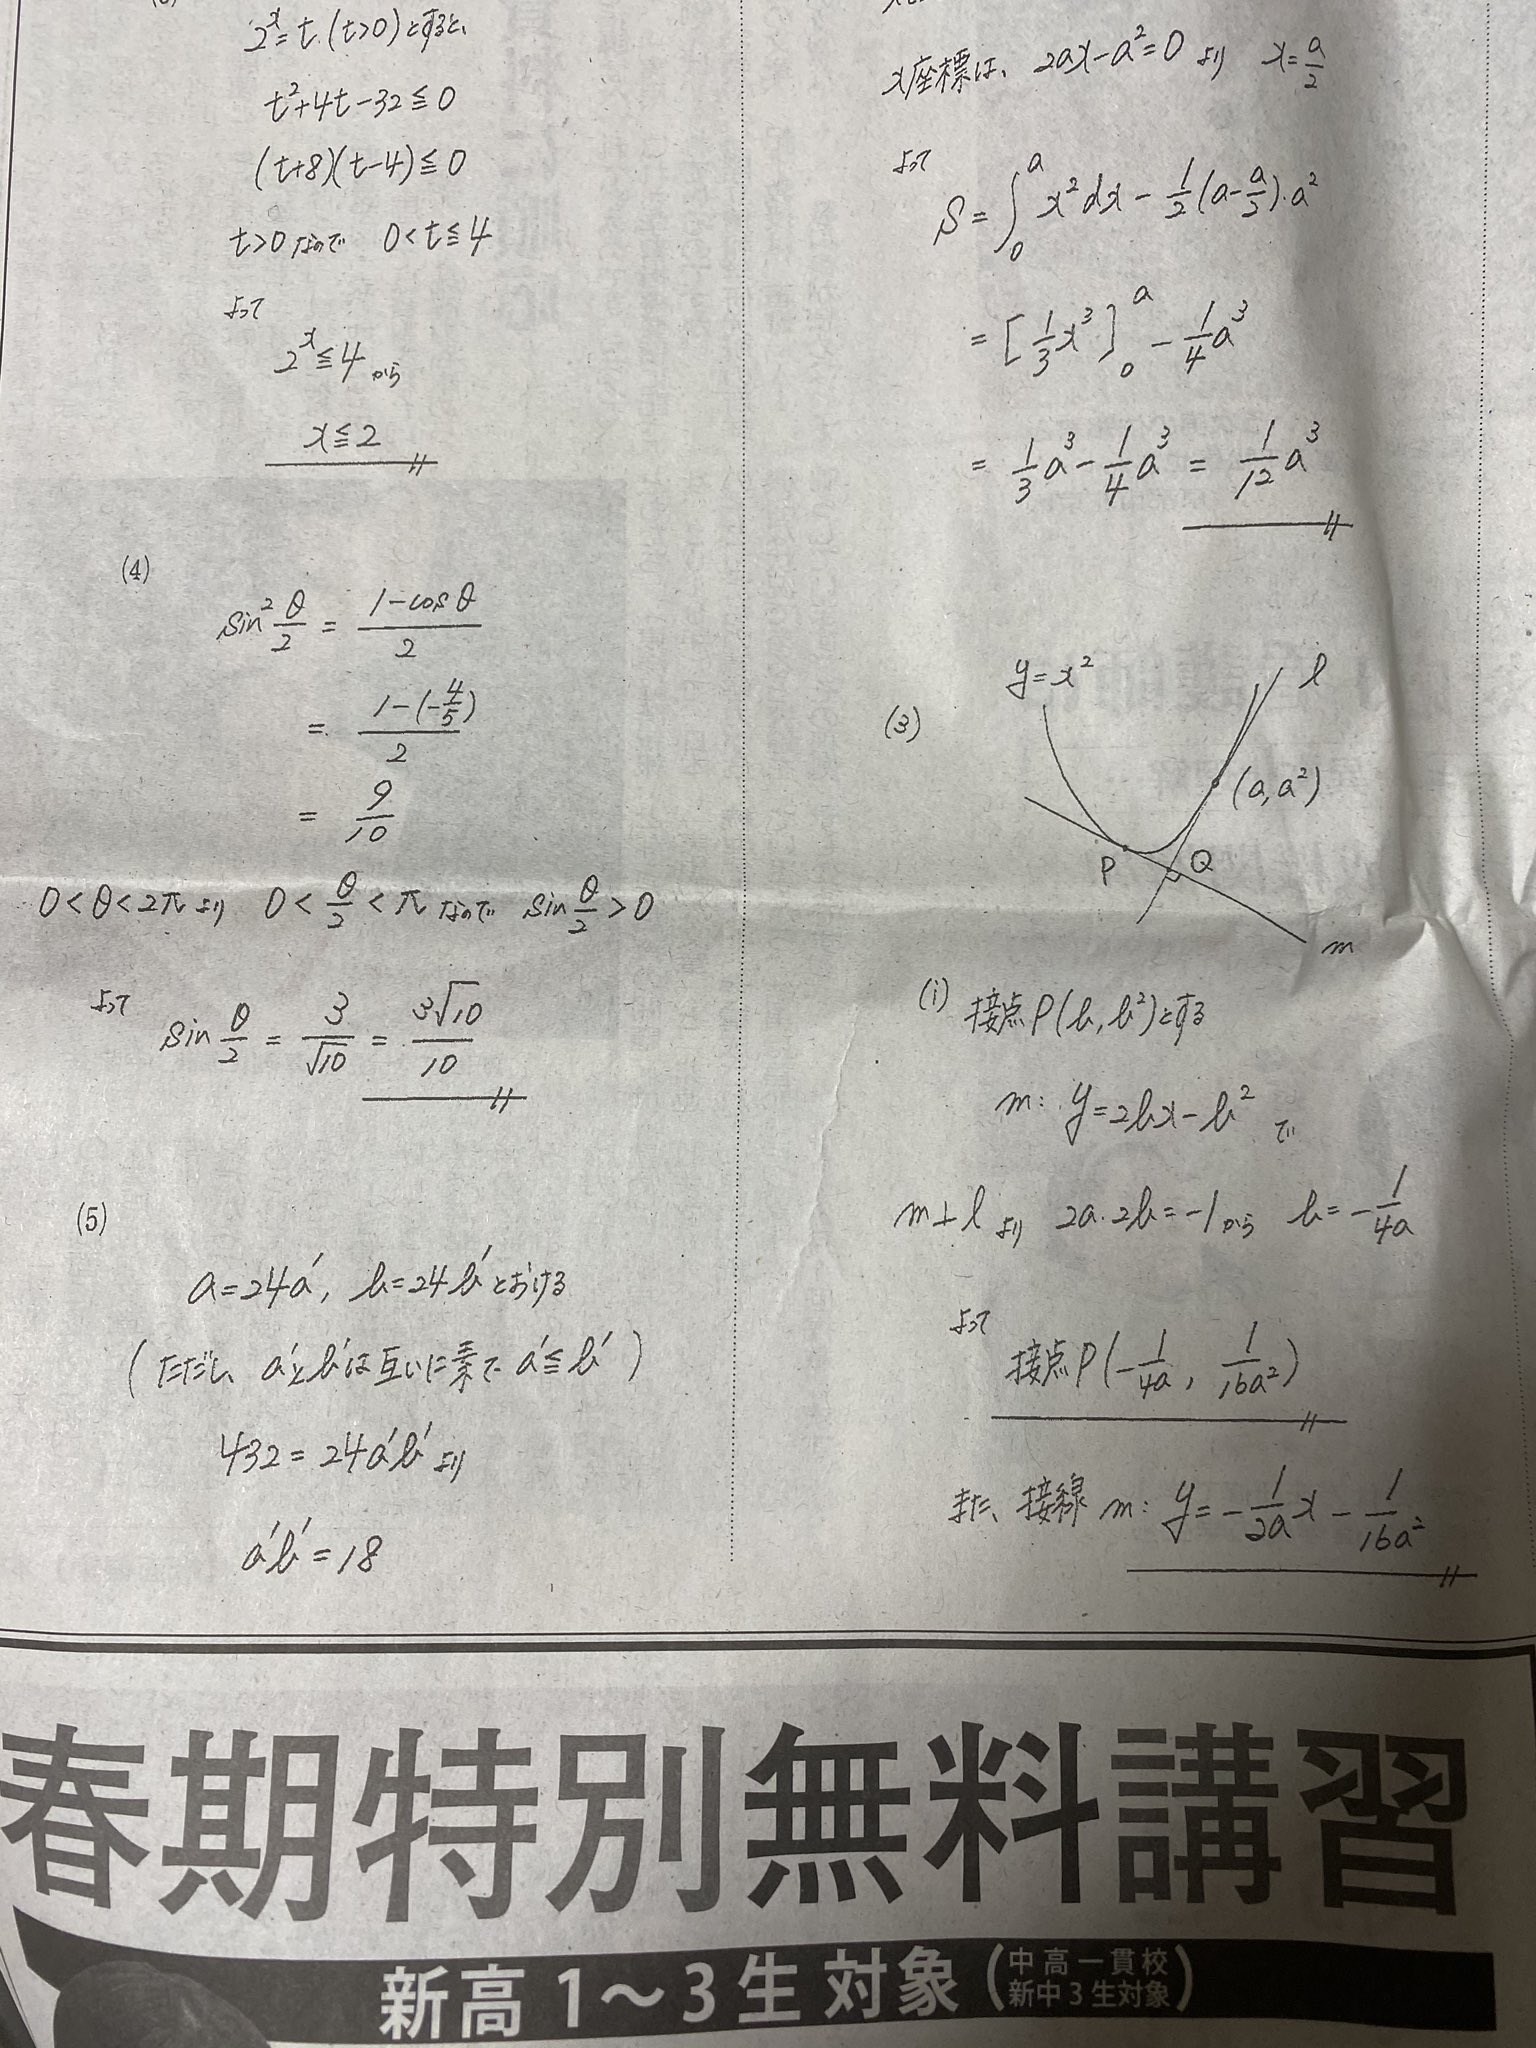 2^x=t (t>0)とすると、
t²+4t-32≦0
(t+8)(t-4)≦0
t>0なので 0<t≦4
よって
2^x≦4から
x≦2
(4)
sin²θ/2 = (1-cosθ)/2
= (1-(-4/5))/2
= 9/10
0<θ<2πより 0<θ/2<πなので sinθ/2>0
よって sinθ/2 = 3/√10 = 3√10/10
(5)
a=24a', b=24b'とおける
(ただし、a'とb'は互いに素で a'≦b')
432=24a'b'より
a'b'=18
x座標は、2ax-a²=0 より x=a/2
よって
S=∫₀^a x²dx - 1/2(a-a/2)·a²
=[1/3x³]₀^a - 1/4a³
= 1/3a³ - 1/4a³ = 1/12a³
(3)
y=x²
l
(a,a²)
P
Q
m
(i) 接点P(b,b²)とする
m: y=2bx-b² で
m⊥l より 2a·2b=-1から b=-1/4a
よって
接点P(-1/4a, 1/16a²)
また、接線 m: y=-1/2a x - 1/16a²
春期特別無料講習
新高1〜3生対象(中高一貫校
新中3生対象)